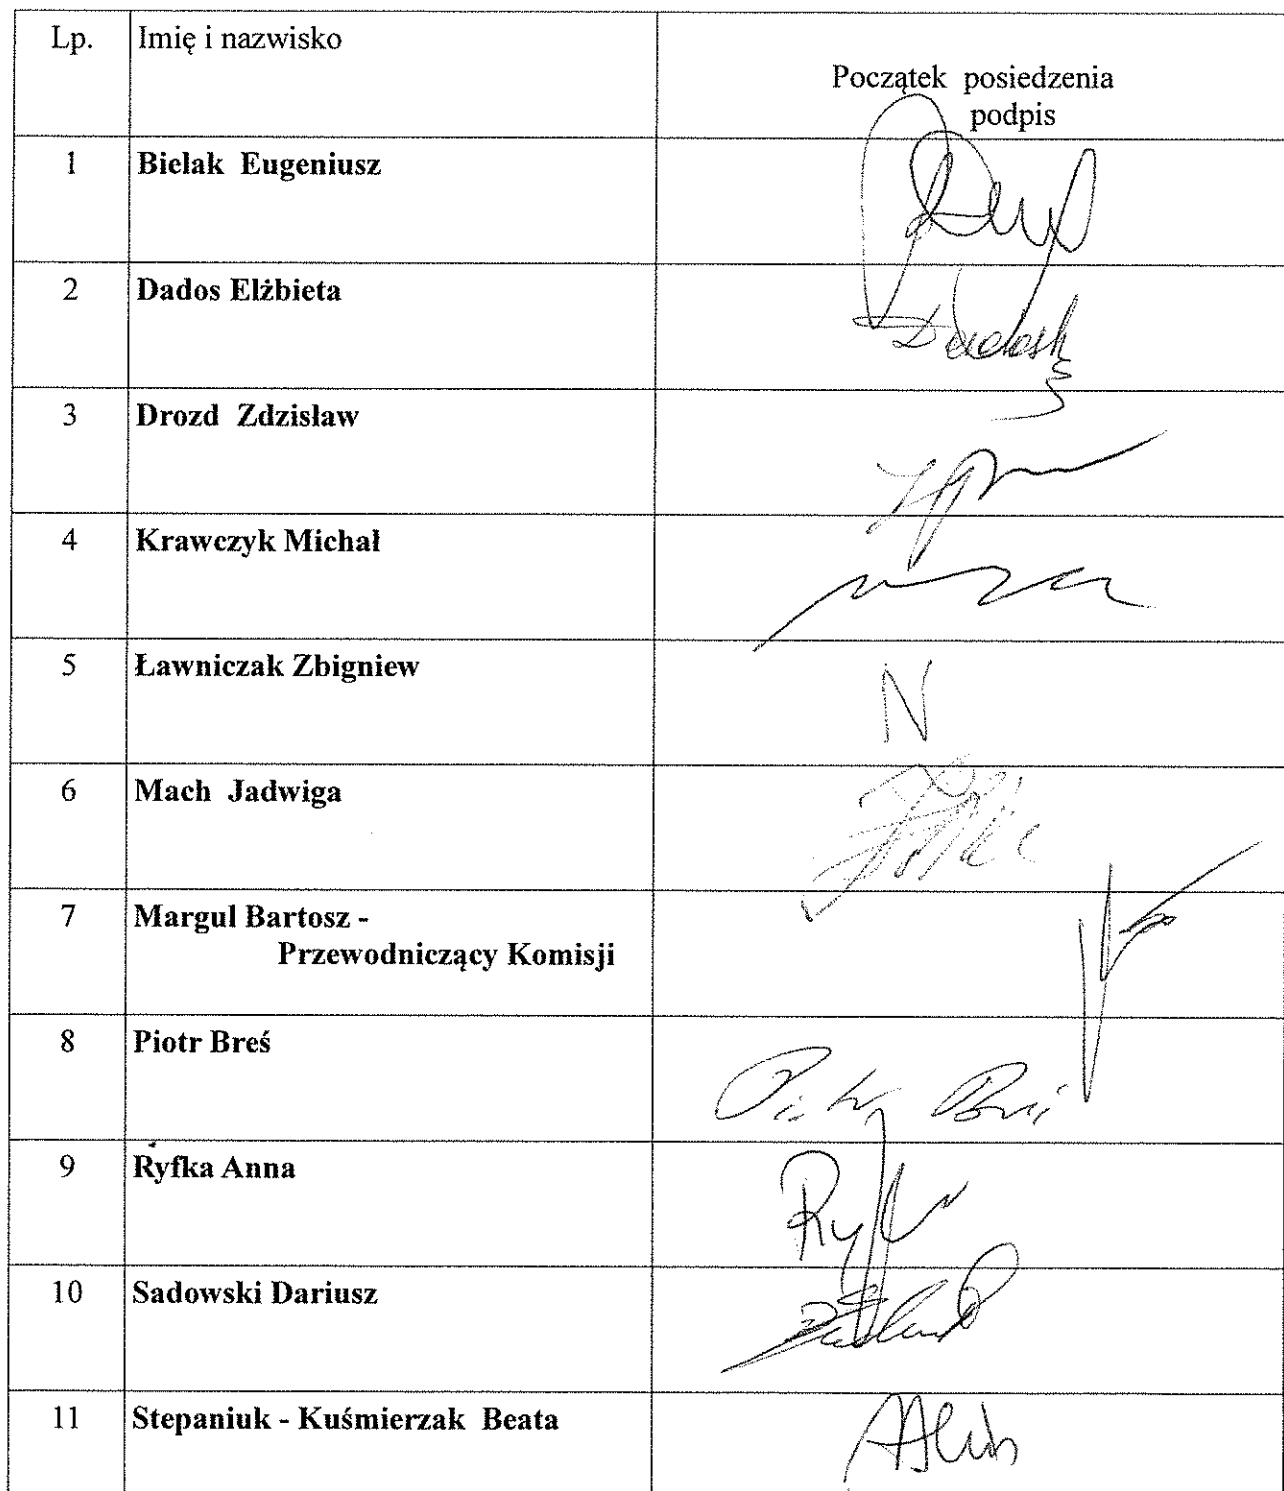 Lp. Imię i nazwisko
Początek posiedzenia
podpis
1 Bielak Eugeniusz
2 Dados Elżbieta
3 Drozd Zdzisław
4 Krawczyk Michał
5 Ławniczak Zbigniew N
6 Mach Jadwiga
7 Margul Bartosz -
Przewodniczący Komisji
8 Piotr Breś
Piotr Breś
9 Ryfka Anna
10 Sadowski Dariusz
11 Stepaniuk - Kuśmierzak Beata